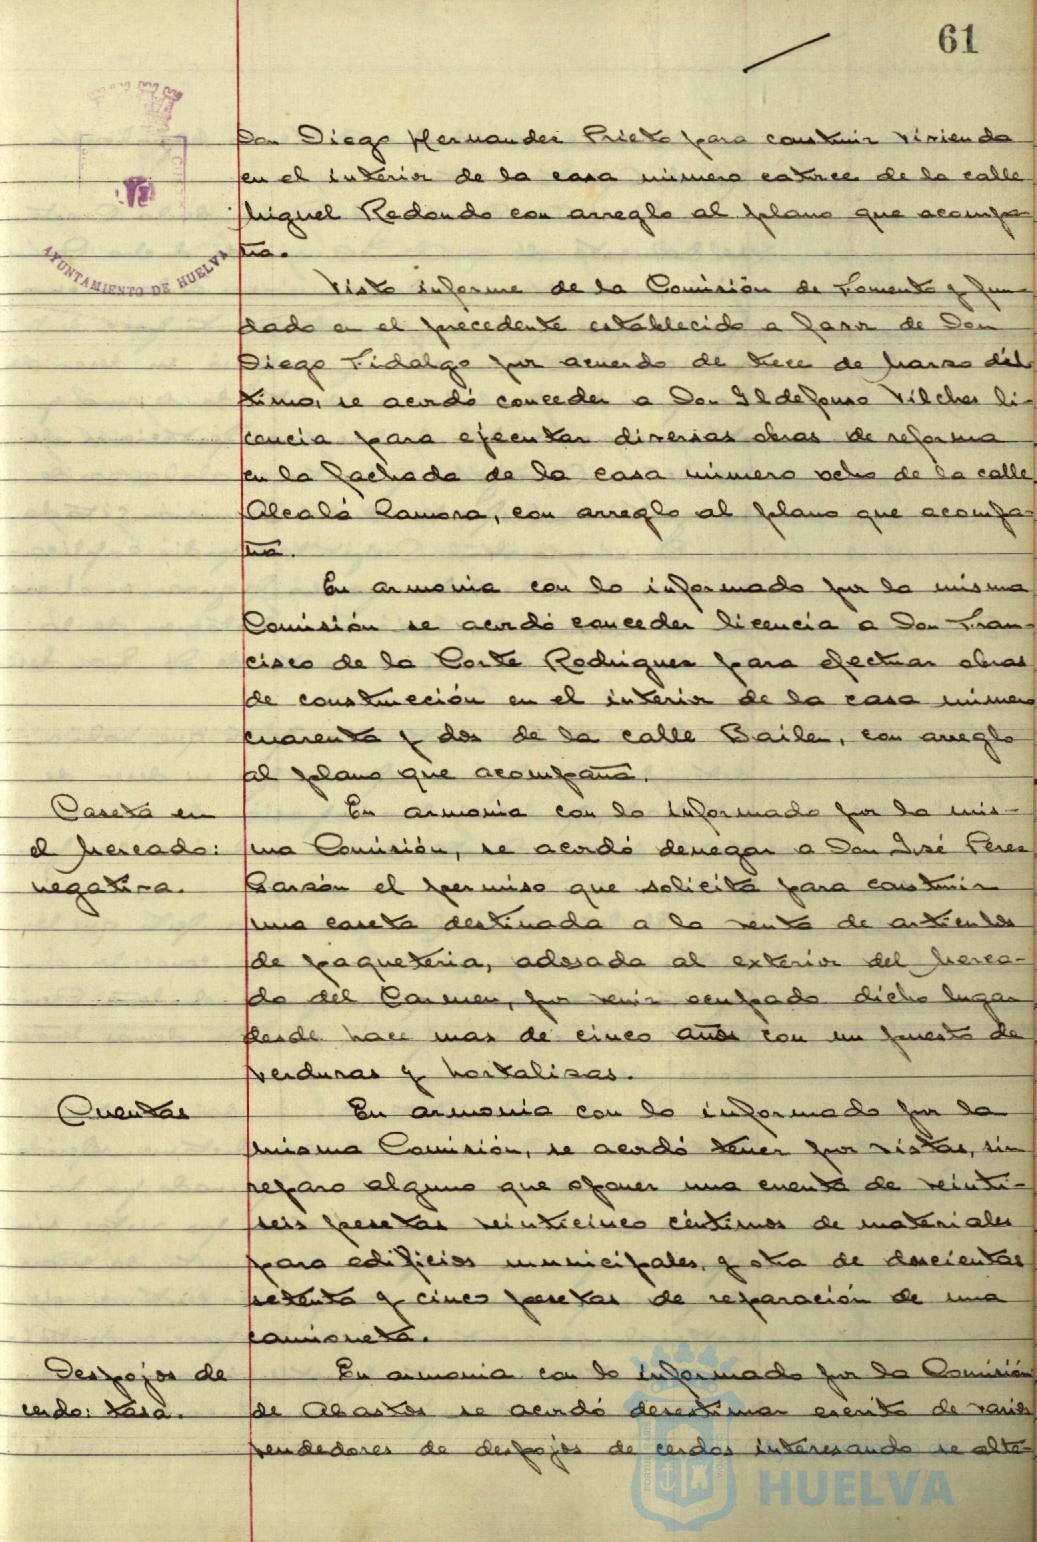 61
AYUNTAMIENTO DE HUELVA
Don Diego Hernandez Prieto para construir vivienda
en el interior de la casa número catorce de la calle
Miguel Redondo con arreglo al plano que acompa-
ña.
Visto informe de la Comisión de Fomento y fun-
dado en el precedente establecido a favor de Don
Diego Fidalgo por acuerdo de trece de Marzo úl-
timo, se acordó conceder a Don Ildefonso Vilches li-
cencia para ejecutar diversas obras de reforma
en la fachada de la casa número ocho de la calle
Alcalá Zamora, con arreglo al plano que acompa-
ña.
En armonia con lo informado por la misma
Comisión se acordó conceder licencia a Don Fran-
cisco de la Corte Rodriguez para efectuar obras
de construcción en el interior de la casa número
cuarenta y dos de la calle Bailen, con arreglo
al plano que acompaña.
Caseta en
el Mercado:
negativa.
En armonia con lo informado por la mis-
ma Comisión, se acordó denegar a Don José Perez
Garzón el permiso que solicita para construir
una caseta destinada a la venta de articulos
de paqueteria, adosada al exterior del Merca-
do del Carmen, por venir ocupado dicho lugar
desde hace mas de cinco años con un puesto de
verduras y hortalizas.
Cuentas
En armonia con lo informado por la
misma Comisión, se acordó tener por vistas, sin
reparo alguno que oponer una cuenta de veinti-
seis pesetas veinticinco céntimos de materiales
para edificios municipales, y otra de doscientas
setenta y cinco pesetas de reparación de una
camioneta.
Despojos de
cerdo: tasa.
En armonia con lo informado por la Comisión
de Abastos se acordó desestimar escrito de varios
vendedores de despojos de cerdos interesando se alte-
HUELVA